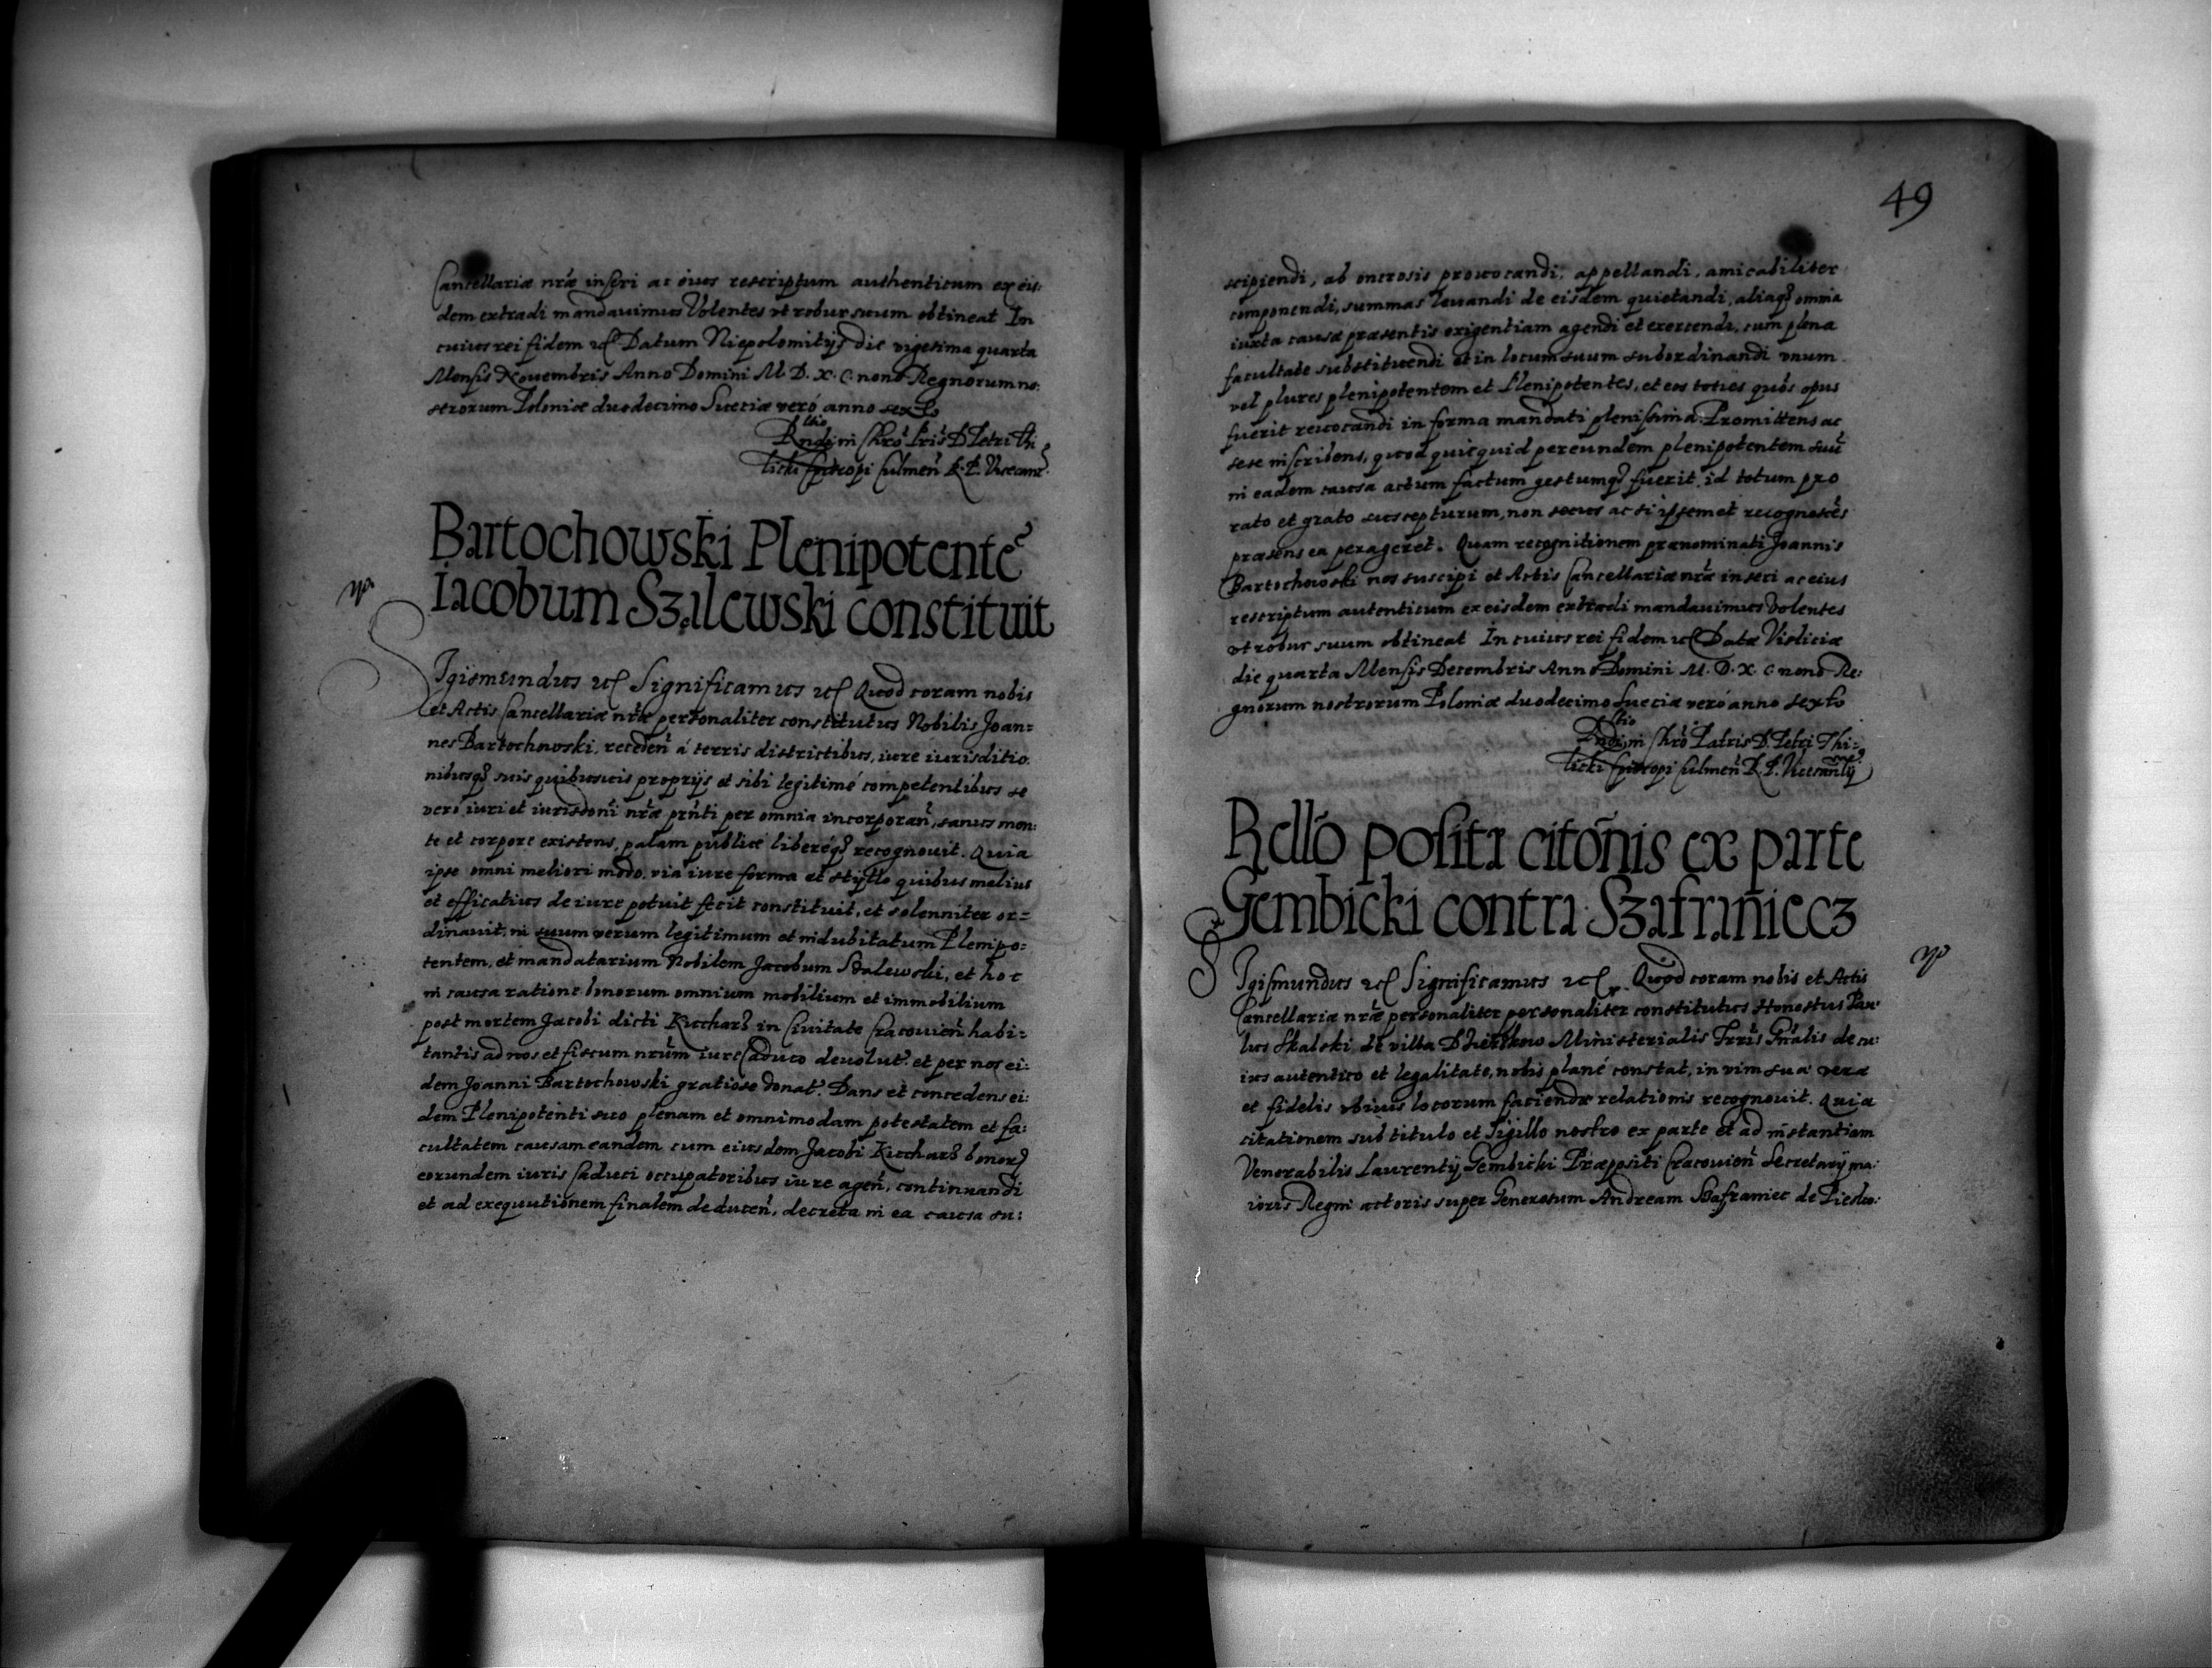 Cancellariæ nr̃æ inseri ac eius rescriptum authenticum ex eis:
dem extradi mandauimus Volentes vt robur suum obtineat In
cuius rei fidem etc Datum Niepolomitijs die vigesima quarta
Mensis Nouembris Anno Domini M. D. X. C. nono Regnorum no:
strorum Poloniæ duodecimo Sueciæ veró anno sexto
Rltio
Rndi in Chrõ Pris D Petri Thi
licki Episcopi Culmen̄ R. P. Vicecanc̃
Bartochowski Plenipotentẽ
Iacobum Szalewski constituit
Sigismundus etc Significamus etc Quod coram nobis
et Actis Cancellariæ nr̃æ personaliter constitutus Nobilis Joan=
nes Bartochowski, receden̄ á terris districtibus, iure iurisditio:
nibusq3 suis quibusuis proprijs et sibi legitimé competentibus se
veró iuri et iurisdoni nr̃æ pr̃nti per omnia incorporan̄, sanus men:
te et corpore existens, palam publicé liberéq3 recognouit. Quia
ipse omni meliori modo, via iure forma et stylo quibus melius
et efficatius de iure potuit fecit constituit, et solenniter or=
dinauit, in suum verum legitimum et indubitatum Plenipo=
tentem, et mandatarium Nobilem Jacobum Szalewski, et hoc
in causa ratione bonorum omnium mobilium et immobilium
post mortem Jacobi dicti Kucharz in Ciuitate Cracouien̄ habi=
tantis ad nos et fiscum nr̃um iure Caduco deuolut. et per nos ei:
dem Joanni Bartochowski gratiose donat. Dans et concedens ei:
dem Plenipotenti suo plenam et omnimodam potestatem et fa:
cultatem causam eandem cum eiusdem Jacobi Kucharz bonor
eorundem iuris Caduci occupatoribus iure agen̄, continuandi
et ad exequutionem finalem deducen̄, decreta in ea causa su:
49
scipiendi, ab onerosis prouocandi, appellandi, amicabiliter
componendi, summas leuandi de eisdem quietandi, aliaq3 omnia
iuxta causæ præsentis exigentiam agendi et exercendi, cum plena
facultate substituendi et in locum suum subordinandi vnum
vel plures plenipotentem et Plenipotentes, et eos toties quòs opus
fuerit reuocandi in forma mandati plenissima. Promittens ac
sese inscribens, quod quicquid per eundem plenipotentem suũ
in eadem causa actum factum gestumq3 fuerit, id totum pro
rato et grato suscepturum, non secus ac si ipsemet recognoscẽs
præsens ea perageret. Quam recognitionem prænominati Joannis
Bartochowski nos suscipi et Actis Cancellariæ nr̃æ inseri ac eius
rescriptum autenticum ex eisdem extradi mandauimus Volentes
vt robur suum obtineat In cuius rei fidem etc Datæ Visliciæ
die quarta Mensis Decembris Anno Domini M. D. X. C. nono Re:
gnorum nostrorum Poloniæ duodecimo Sueciæ veró anno sexto
Rltio
Rndi in Chrõ Patris D. Petri Thi:
licki Episcopi Culmen̄ R. P. Vicecancellij
Rellõ posita citõnis ex parte
Gembicki contra Szafraniecz
Sigismundus etc Significamus etc Quod coram nobis et Actis
Cancellariæ nr̃æ personaliter personaliter constitutus Honestus Pau:
lus Skalski de villa Ministerialis Trr̃is Gñalis de cu:
ius autentico et legalitate, nobis plané constat, in vim suæ veræ
et fidelis vbiuis locorum faciendæ relationis recognouit. Quia
citationem sub titulo et Sigillo nostro ex parte et ad instantiam
Venerabilis Laurentij Gembicki Præpositi Cracouien̄ Secretarij ma:
ioris Regni actoris super Generosum Andream Szafraniec de Piesko: